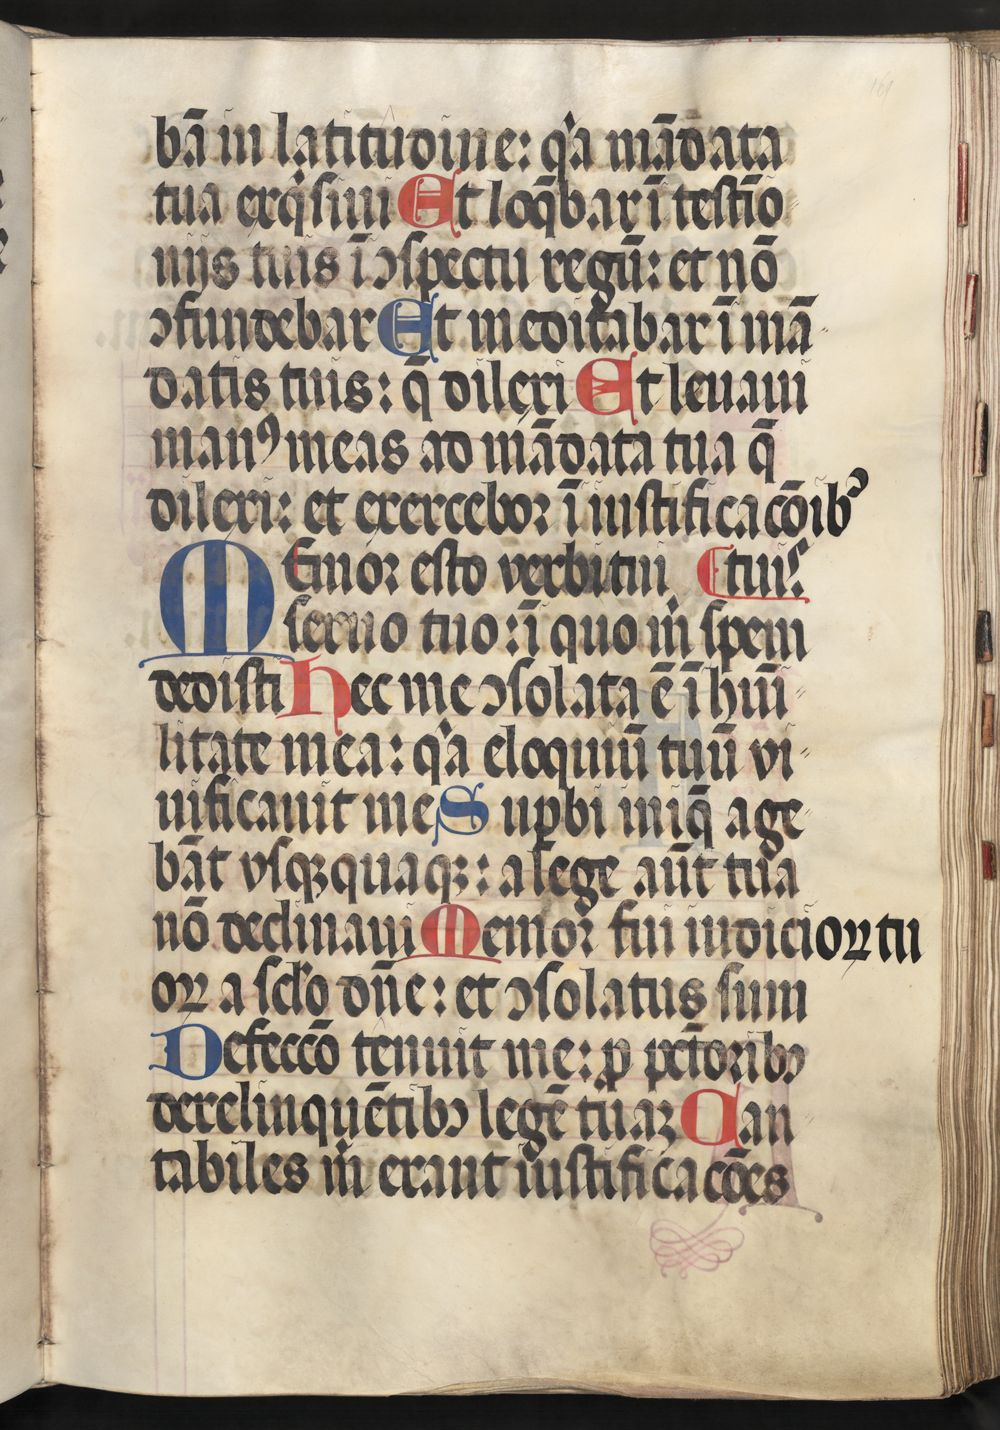 bā in latitudine: qͥa mādata
tua exqͥsiui Et loq̄bar ī testīo
nijs tuis ī ꝯspectu regū: et nō
ꝯfundebar Et meditabar ī mā
datis tuis: q̄ dilexi Et leuaui
manꝰ meas ad mādata tua q̄
dilexi: et exercebor ī iustificacōibꝰ
Memor esto verbi tui tuis
seruo tuo: ī quo mͥ spem
dedisti Hec me ꝯsolata ē ī humī
litate mea: qͥa eloquiū tuū vi
uificauit me Suꝑbi iniq̄ age
bāt vsqꝫquaqꝫ: a lege aūt tua
nō declinaui Memor fui iudicioꝝ tu
oꝝ a sclo dn̄e: et ꝯsolatus sum
Defeccō tenuit me: ꝓ pctōribꝫ
derelinquētibꝫ legē tuaꝫ Can
tabiles mͥ erant iustificacōes
161